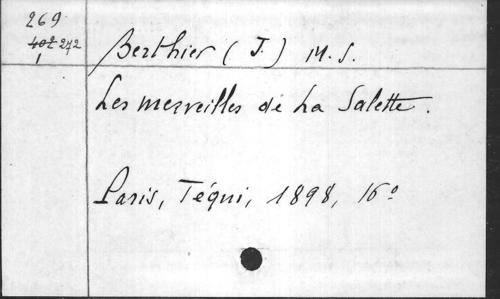 269
402 272
1
Berthier (J.) M. S.
Les merveilles de La Salette.
Paris, Téqui, 1898, 16°